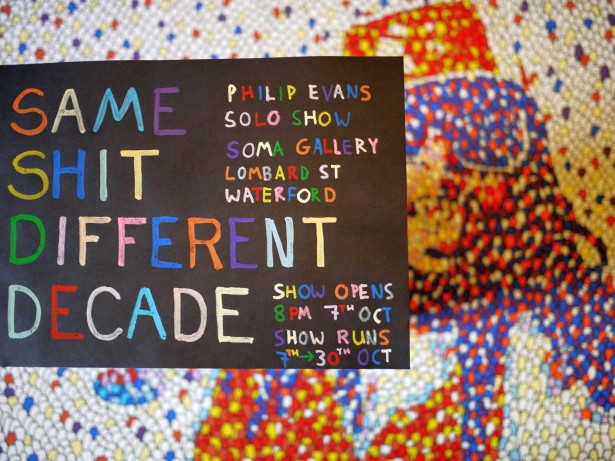 SAME
SHIT
DIFFERENT
DECADE
PHILIP EVANS
SOLO SHOW
SOMA GALLERY
LOMBARD ST
WATERFORD
SHOW OPENS
8PM 7TH OCT
SHOW RUNS
7TH→30TH OCT